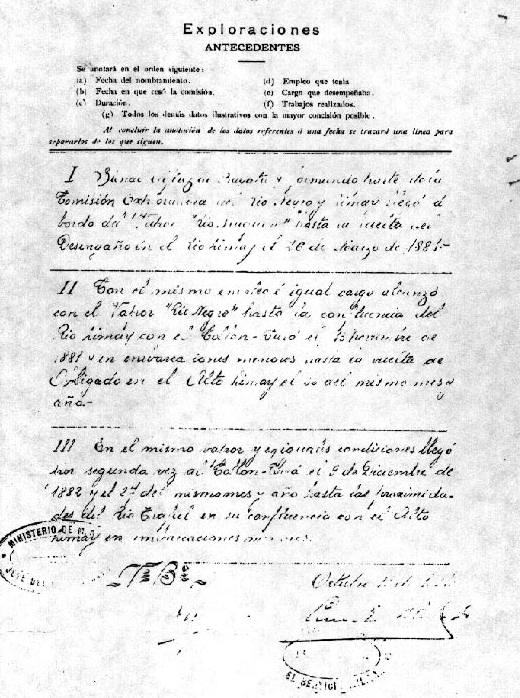 Exploraciones
ANTECEDENTES
Se anotará en el orden siguiente:
(a) Fecha del nombramiento.
(b) Fecha en que cesó la comisión.
(c) Duración.
(d) Empleo que tenía
(e) Cargo que desempeñaba.
(f) Trabajos realizados.
(g) Todos los demás datos ilustrativos con la mayor concisión posible.
Al concluir la anotación de los datos referentes á una fecha se trazará una línea para
separarlos de los que siguen.
I formando parte de la
Comisión Exploradora del Río Negro y Limay llegó á
bordo del Vapor "Río Neuquen" hasta la vuelta del
Desengaño en el Río Limay el 26 de Marzo de 1881-
II Con el mismo empleo é igual cargo alcanzó
con el Vapor "Río Negro" hasta la confluencia del
Río Limay con el Collon-Curá el de
1881 y en embarcaciones menores hasta la vuelta de
Obligado en el Alto Limay el 30 del mismo mes y
año-
III En el mismo vapor y en iguales condiciones llegó
por segunda vez al Collon-Curá el 9 de Diciembre de
1882 y el 27 del mismo mes y año hasta las proximida-
des del Río Traful en su confluencia con el Alto
Limay en embarcaciones menores.
MINISTERIO DE
VºBº
Octubre